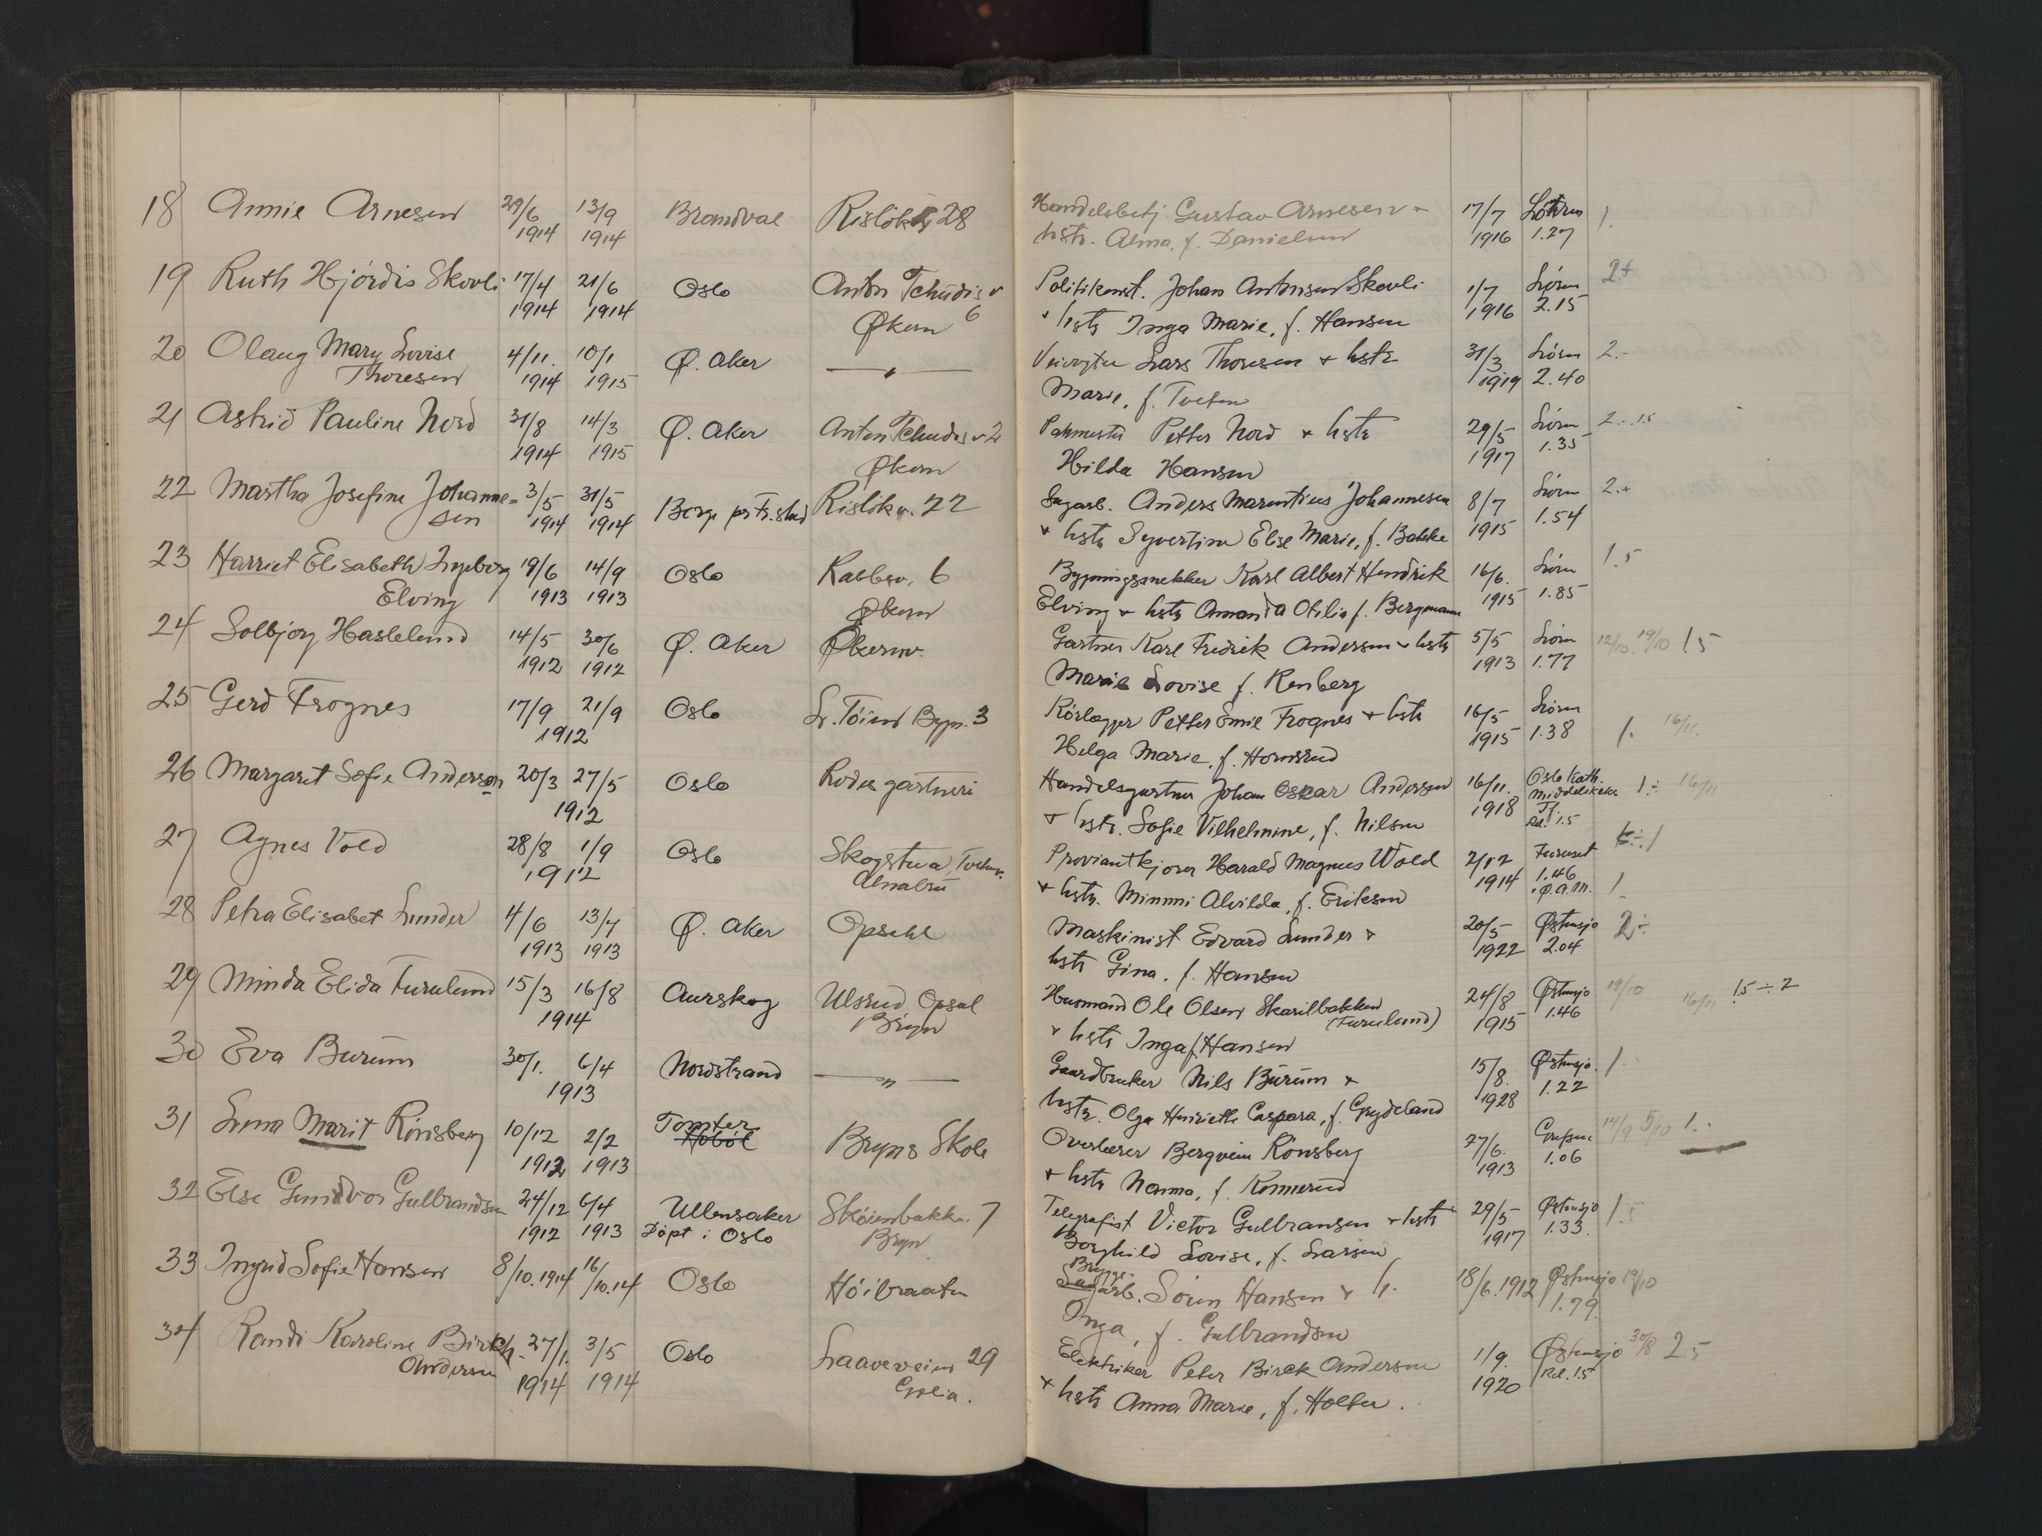 18 Annie Arnesen 29/6 13/9 Brandval Rislökv. 28 Handelsbetj Gustav Arnesen + 17/7 Lören 1.
1914 1914 hstr. Alma, f. Danielsen 1916 1.27
19 Ruth Hjördis Skovli 17/4 21/6 Oslo Anton Tchudis v Politikonst. Johan Antonsen Skovli 1/7 Lören 2+
1914 1914 Økern 6 + hstr Inga Marie, f. Hansen 1916 2.15
20 Olaug Mary Lovise 4/11. 10/1 Ø. Aker — " — Lars Thoresen + hstr 31/3 Lören 2.-
Thoresen 1914 1915 Marie, f. Tveten 1919 2.40
21 Astrid Pauline Nord 31/8 14/3 Ø. Aker Anton Tchudis v 2 Petter Nord + hstr 29/5 Lören 2
1914 1915 Økern Hilda Hansen 1917 1.35
22 Martha Josefine Johanne- 3/5 31/5 Borge pr Fr.stad Rislökv. 22 Sagarb. Anders Marentius Johannesen 8/7 Lören 2.+
sen 1914 1914 + hstr Syvertine Elise Marie, f. Bakke 1915 1.54
23 Harriet Elisabeth Ingeborg 19/6 14/9 Oslo Kabbev. 6 Bygningssnekker Karl Albert Hendrik 16/6. Lören 1.5
Elving 1913 1913 Økern Elving + hstr Amanda Otilia f. Bergmann 1915 1.85
24 Solbjörg Haslelund 14/5 30/6 Ø. Aker Økernv. Gartner Karl Fredrik Andersen + hstr 5/5 Lören 12/10. 19/10 1.5
1912 1912 Marie Lovise f. Renberg 1913 1.77
25 Gerd Frognes 17/9 21/9 Oslo L. Töien Bygn. 3 Rörlegger Petter Emil Frognes + hstr 16/5 Lören
1912 Helga Marie, f. Hornsrud 1915 1.38 1. 16/11.
26 Margaret Sofie Anderson 20/3 27/5 Oslo Rodes gartneri Handelsgartner Johan Oskar Andersen 16/11. Oslo Kath. 1.÷ 16/11
1912 + hstr. Sofie Vilhelmine, f. Nilsen 1918 middelskole
Rel. 1.5
27 Agnes Vold 28/8 1/9 Oslo Skogstua, Tvetenv. Proviantkjörer Harald Magnus Wold 2/12 Furuset
1912 Alnabru + hstr. Minni Alvilda, f. Eriksen 1914 1.46 1
28 Petra Elisabet Lunder 4/6 13/7 Ø. Aker Opsahl Maskinist Edvard Lunder + 20/5 Østensjo 2÷
1913 1913 hstr Gina. f. Hansen 1922 2.04
29 Minda Elida Furulund 15/3 16/8 Aurskog Ulsrud Opsal Husmand Ole Olsen Skarilbakken 24/8 Østensjo 19/10 16/11 1.5 ÷ 2
1914 Bryn (Furulund) 1915 1.46
+ hstr Inga f. Hansen
30 Eva Burum 30/1. 6/4 Nordstrand — " — Gaardbruker Nils Burum + 15/8. Østensjo. 1
1913 hstr. Olga Henriette Caspara, f. Grydeland 1928 1.22
31 Marit Rönsberg 10/12 2/2 Tomter Bryns Skole Overlærer Bergvein Rönsberg 27/6. Grefsen 14/9 5/10 1.
1912 1913 Hobøl + hstr Nanna, f. Kommerud 1913 1.06
32 Else Gundvor Gulbrandsen 24/12 6/4 Ullensaker Skøienbakkn. 7 Telegrafist Victor Gulbransen + hstr 29/5 Østensjo 1.5
1912 1913 Döpt i Oslo Bryn Borghild Lovise, f. Larsen 1917 1.33.
33 Ingrid Sofie Hansen 8/10.1914 16/10.14 Oslo Höibraaten Brygge-
Sagarb. Sören Hansen + h. 18/6.1912 Østensjo 19/10
Inga, f. Gulbrandsen 1.79.
34 Randi Karoline Birch- 27/1. 3/5 Oslo Laaveveien 29 Elektriker Peter Birch Andersen 1/9. Østensjo 30/8 2.5
Andersen 1914 1914 Godlia. + hstr Anna Marie, f. Holter. 1920 Rel. 1.5